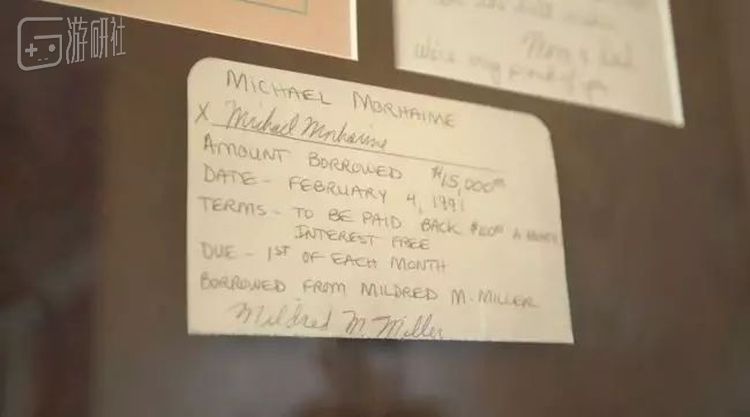 游研社
Mom & Dad
MICHAEL MORHAIME
X Michael Morhaime
AMOUNT BORROWED $15,000⁰⁰
DATE - FEBRUARY 4, 1991
TERMS - TO BE PAID BACK A MONTH
INTEREST FREE
DUE - 1ST OF EACH MONTH
BORROWED FROM MILDRED M. MILLER
Mildred M. Miller